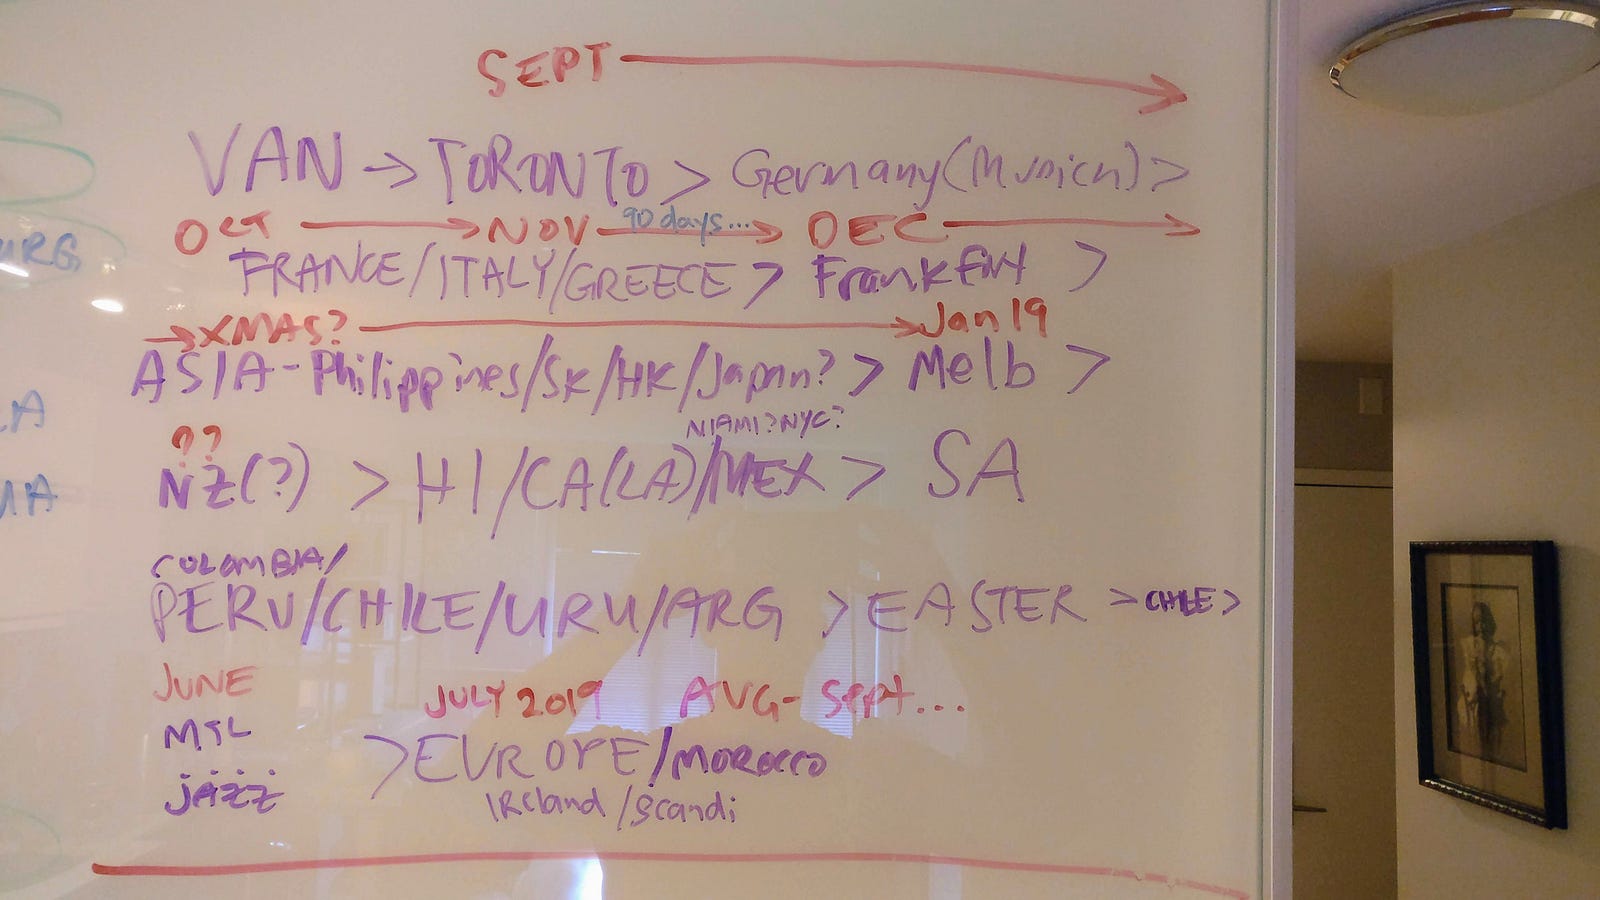 SEPT →
VAN → TORONTO > Germany (Munich) >
OCT → NOV → 90 days... DEC →
FRANCE/ITALY/GREECE > Frankfurt >
→ XMAS? → Jan 19
ASIA - Philippines/SK/HK/Japan? > Melb >
??
MIAMI? NYC?
NZ(?) > HI/CA(LA)/MEX > SA
COLOMBIA/
PERU/CHILE/URU/ARG > EASTER > CHILE >
JUNE JULY 2019 AUG - Sept...
MTL
> EUROPE/MOROCCO
JAZZ
IReland/Scandi
URG
LA
MA